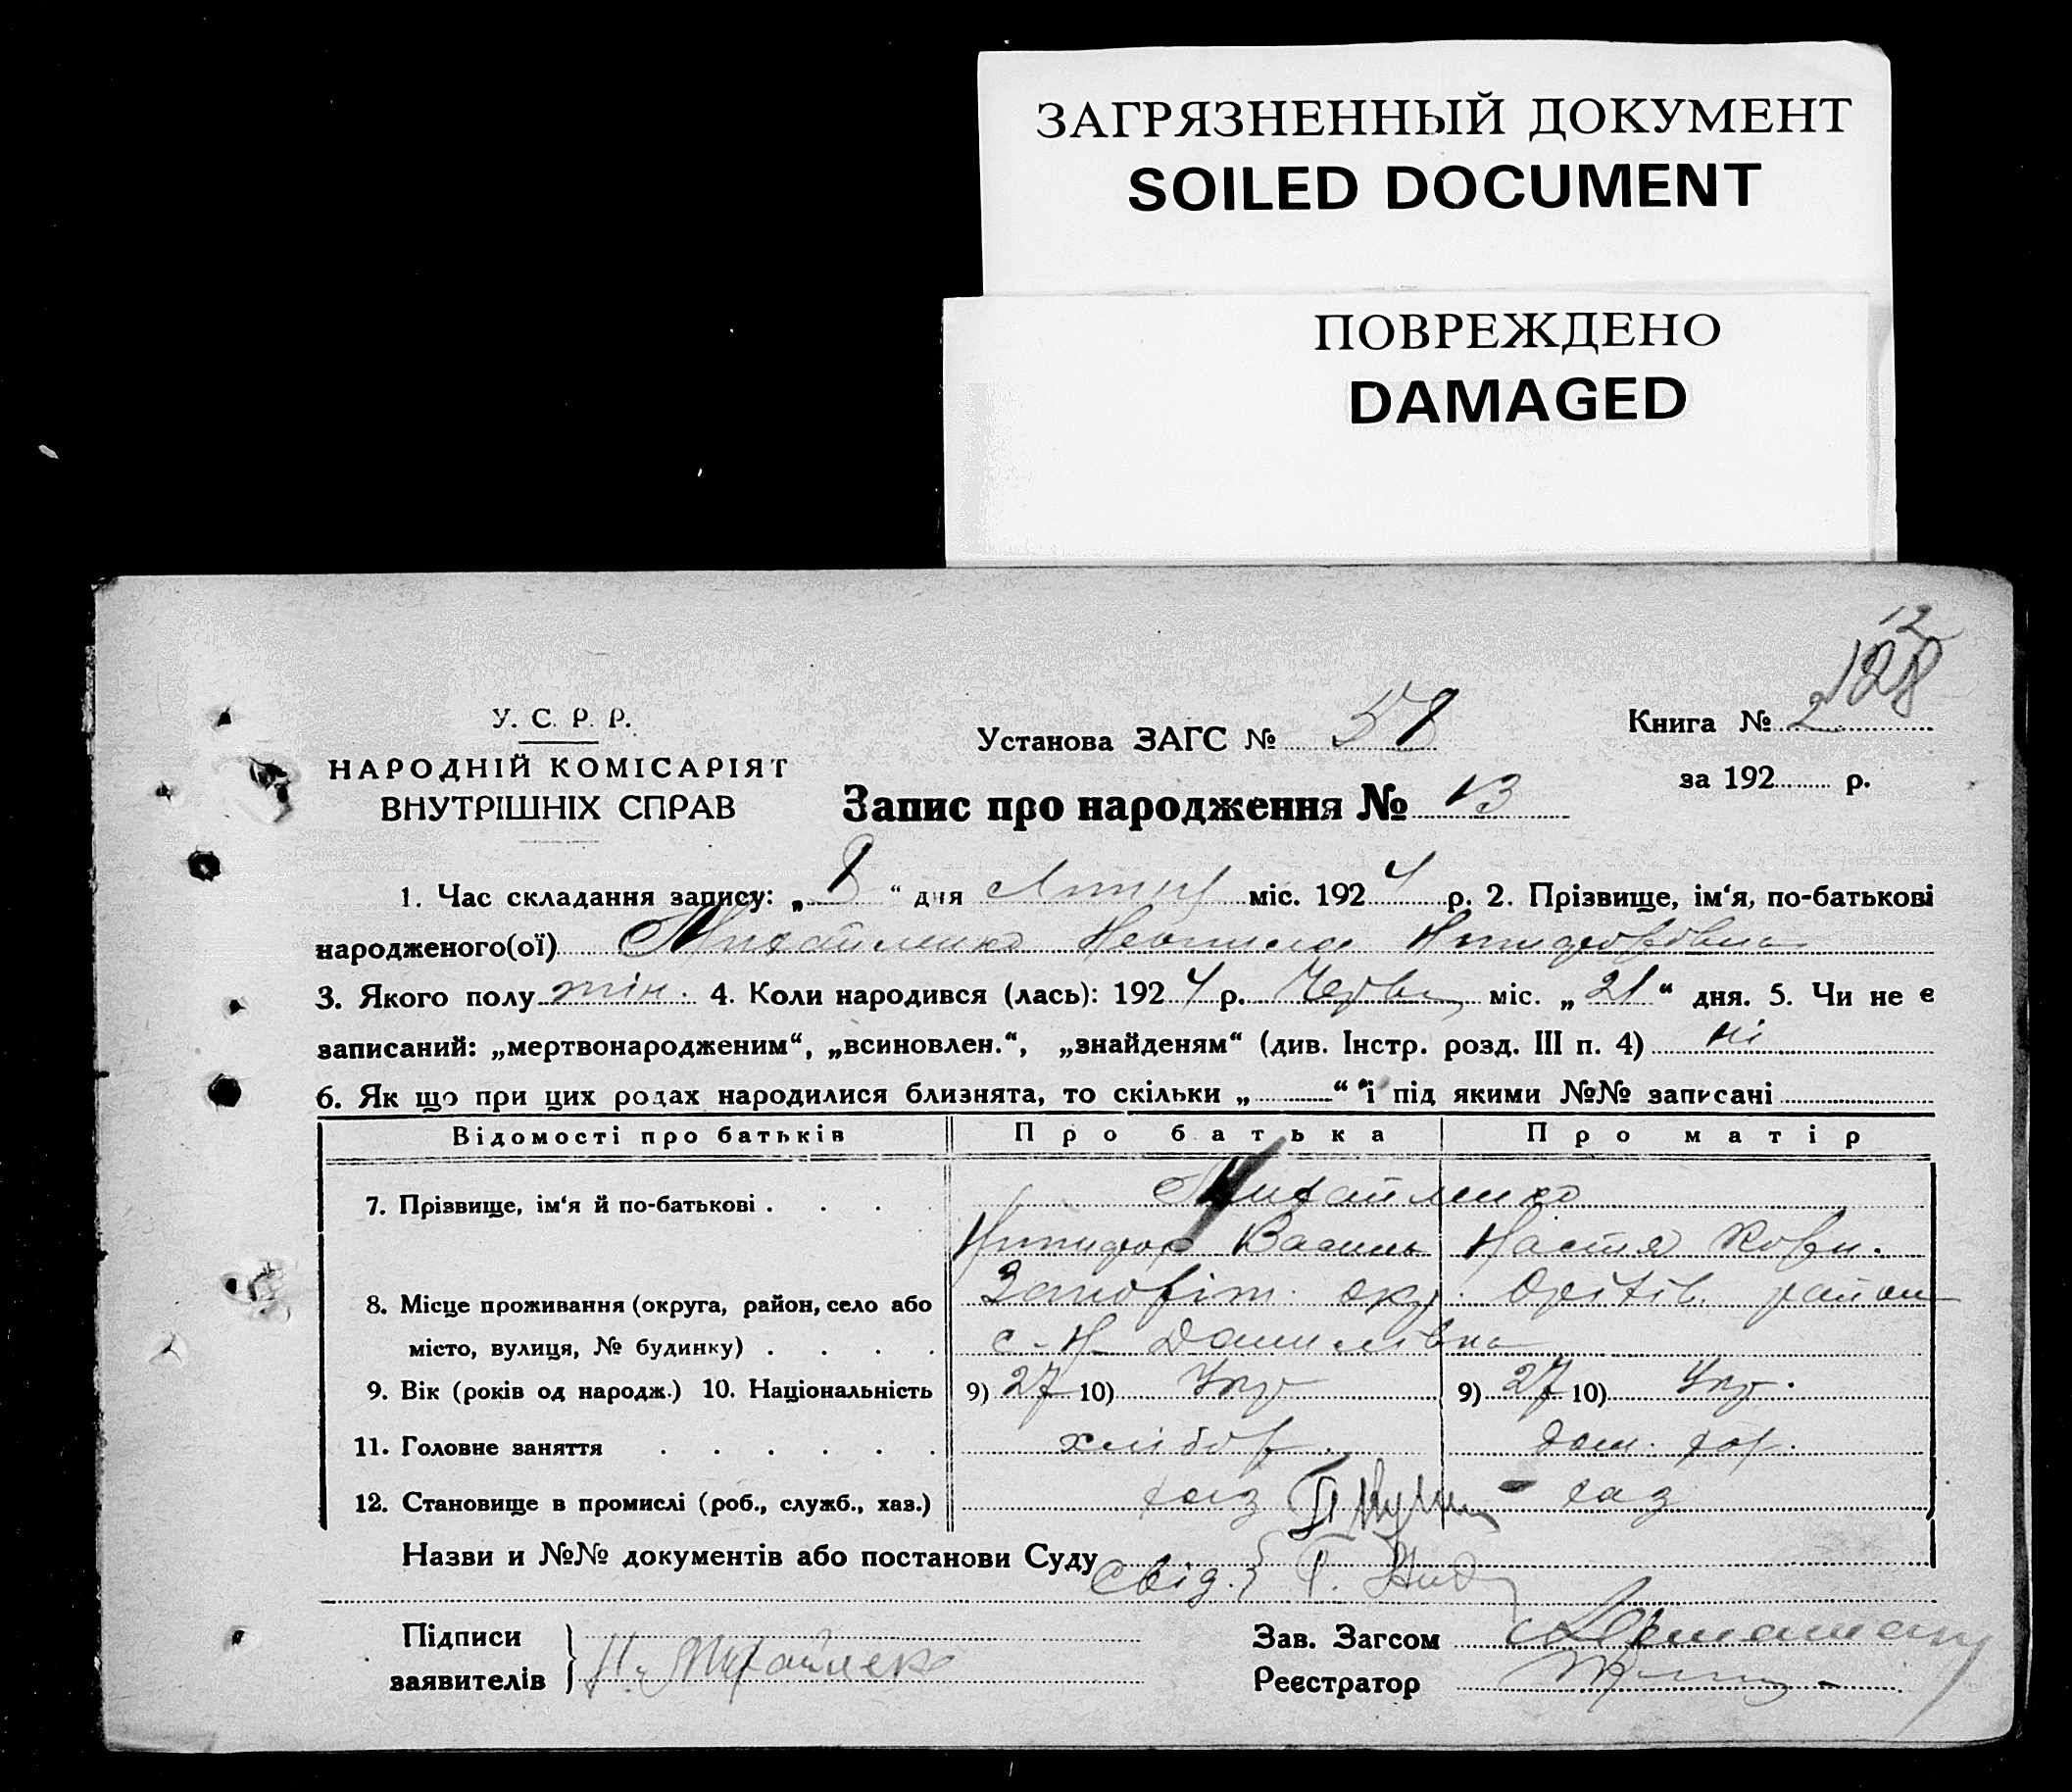 ЗАГРЯЗНЕННЫЙ ДОКУМЕНТ
SOILED DOCUMENT
ПОВРЕЖДЕНО
DAMAGED
12
128
У. С. Р. Р.
НАРОДНІЙ КОМІСАРІЯТ
ВНУТРІШНІХ СПРАВ
Установа ЗАГС № 58
Книга № 2
за 192 р.
Запис про народження № 13
1. Час складання запису: „ 8 “ дня Липця міс. 192 4 р. 2. Прізвище, ім‘я, по-батькові
народженого(ої) Михайленко Неонила
3. Якого полу жін. 4. Коли народився (лась): 192 4 р. Червн міс. „ 21 “ дня. 5. Чи не є
записаний: „мертвонародженим“, „всиновлен.“, „знайденям“ (див. Інстр. розд. III п. 4) ні
6. Як що при цих родах народилися близнята, то скільки „ “ і під якими №№ записані
Відомості про батьків Про батька Про матір
7. Прізвище, ім‘я й по-батькові . . . . Михайленко
Василь Настя
8. Місце проживання (округа, район, село або Запоріж. окр. Оріхів. район
місто, вулиця, № будинку) . . . . с. Н. Данилівка
9. Вік (років од народж.) 10. Національність 9) 27 10) Укр 9) 27 10) Укр.
11. Головне заняття . . . . . . хлібор. дом. гос.
12. Становище в промислі (роб., служб., хаз.) хаз хаз
Назви и №№ документів або постанови Суду
Свід.
Підписи
заявителів Н. Михайленко
Зав. Загсом
Реєстратор